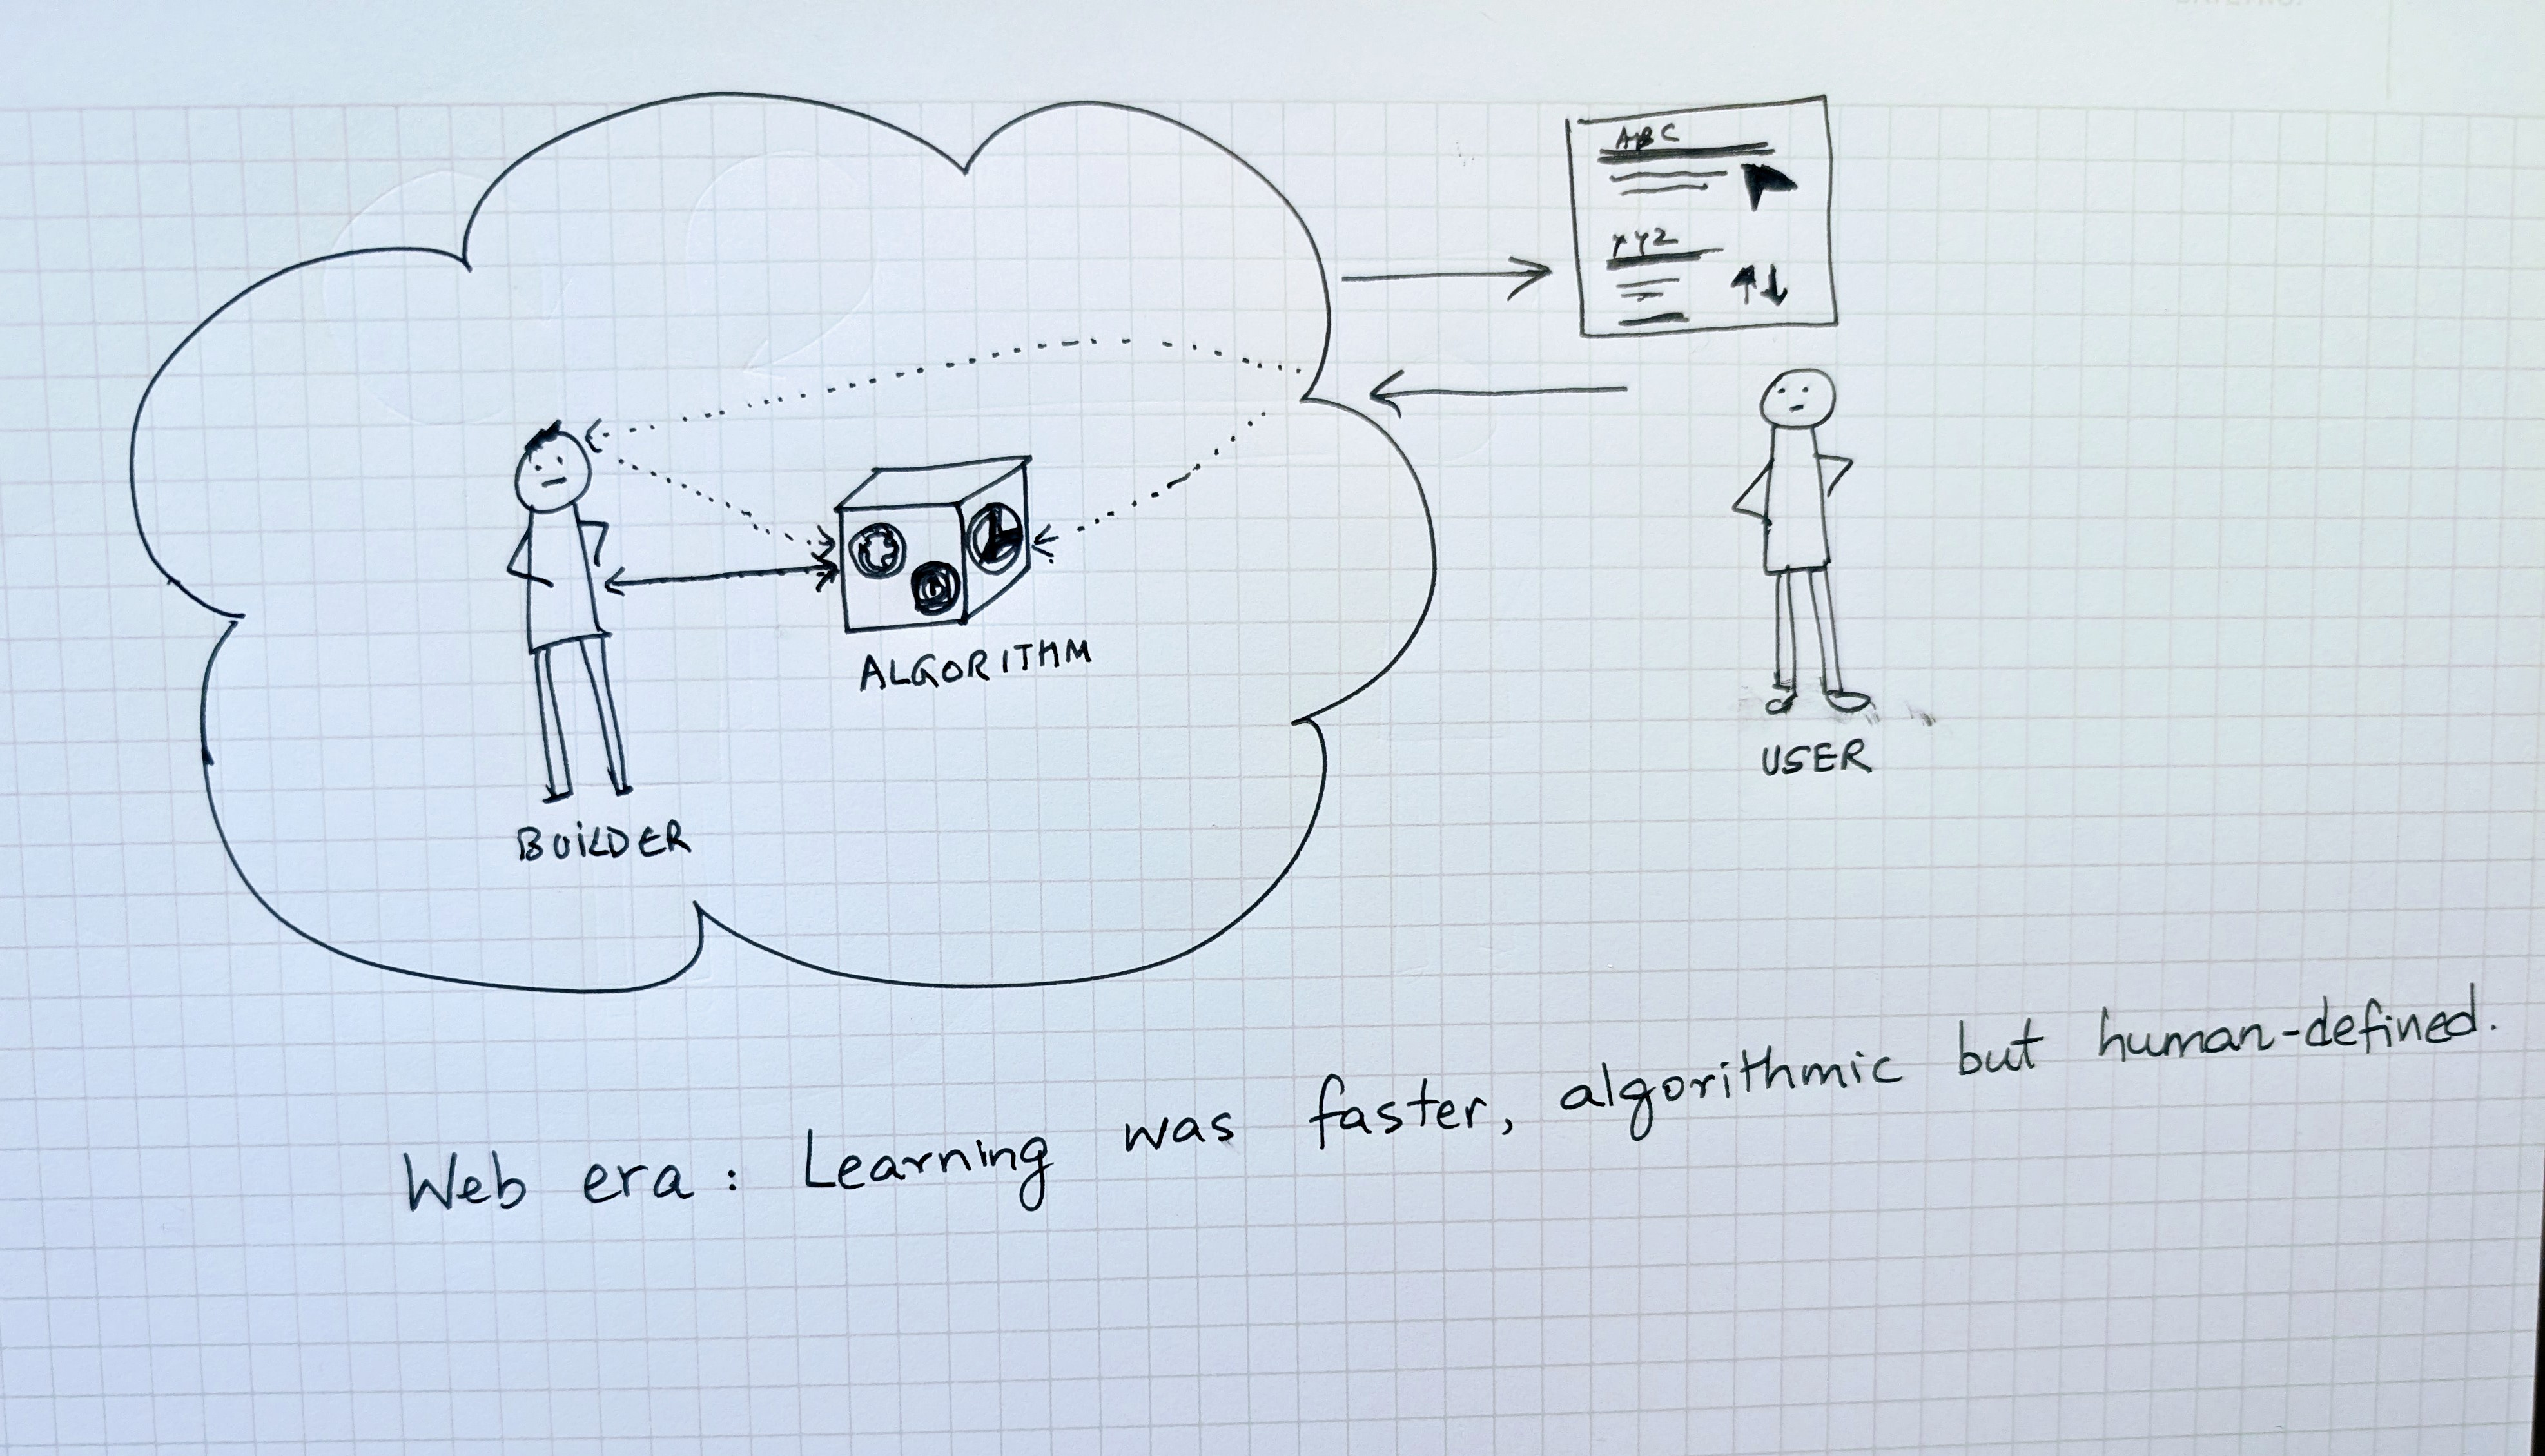 ABC
XYZ
ALGORITHM
BUILDER
USER
Web era: Learning was faster, algorithmic but human-defined.